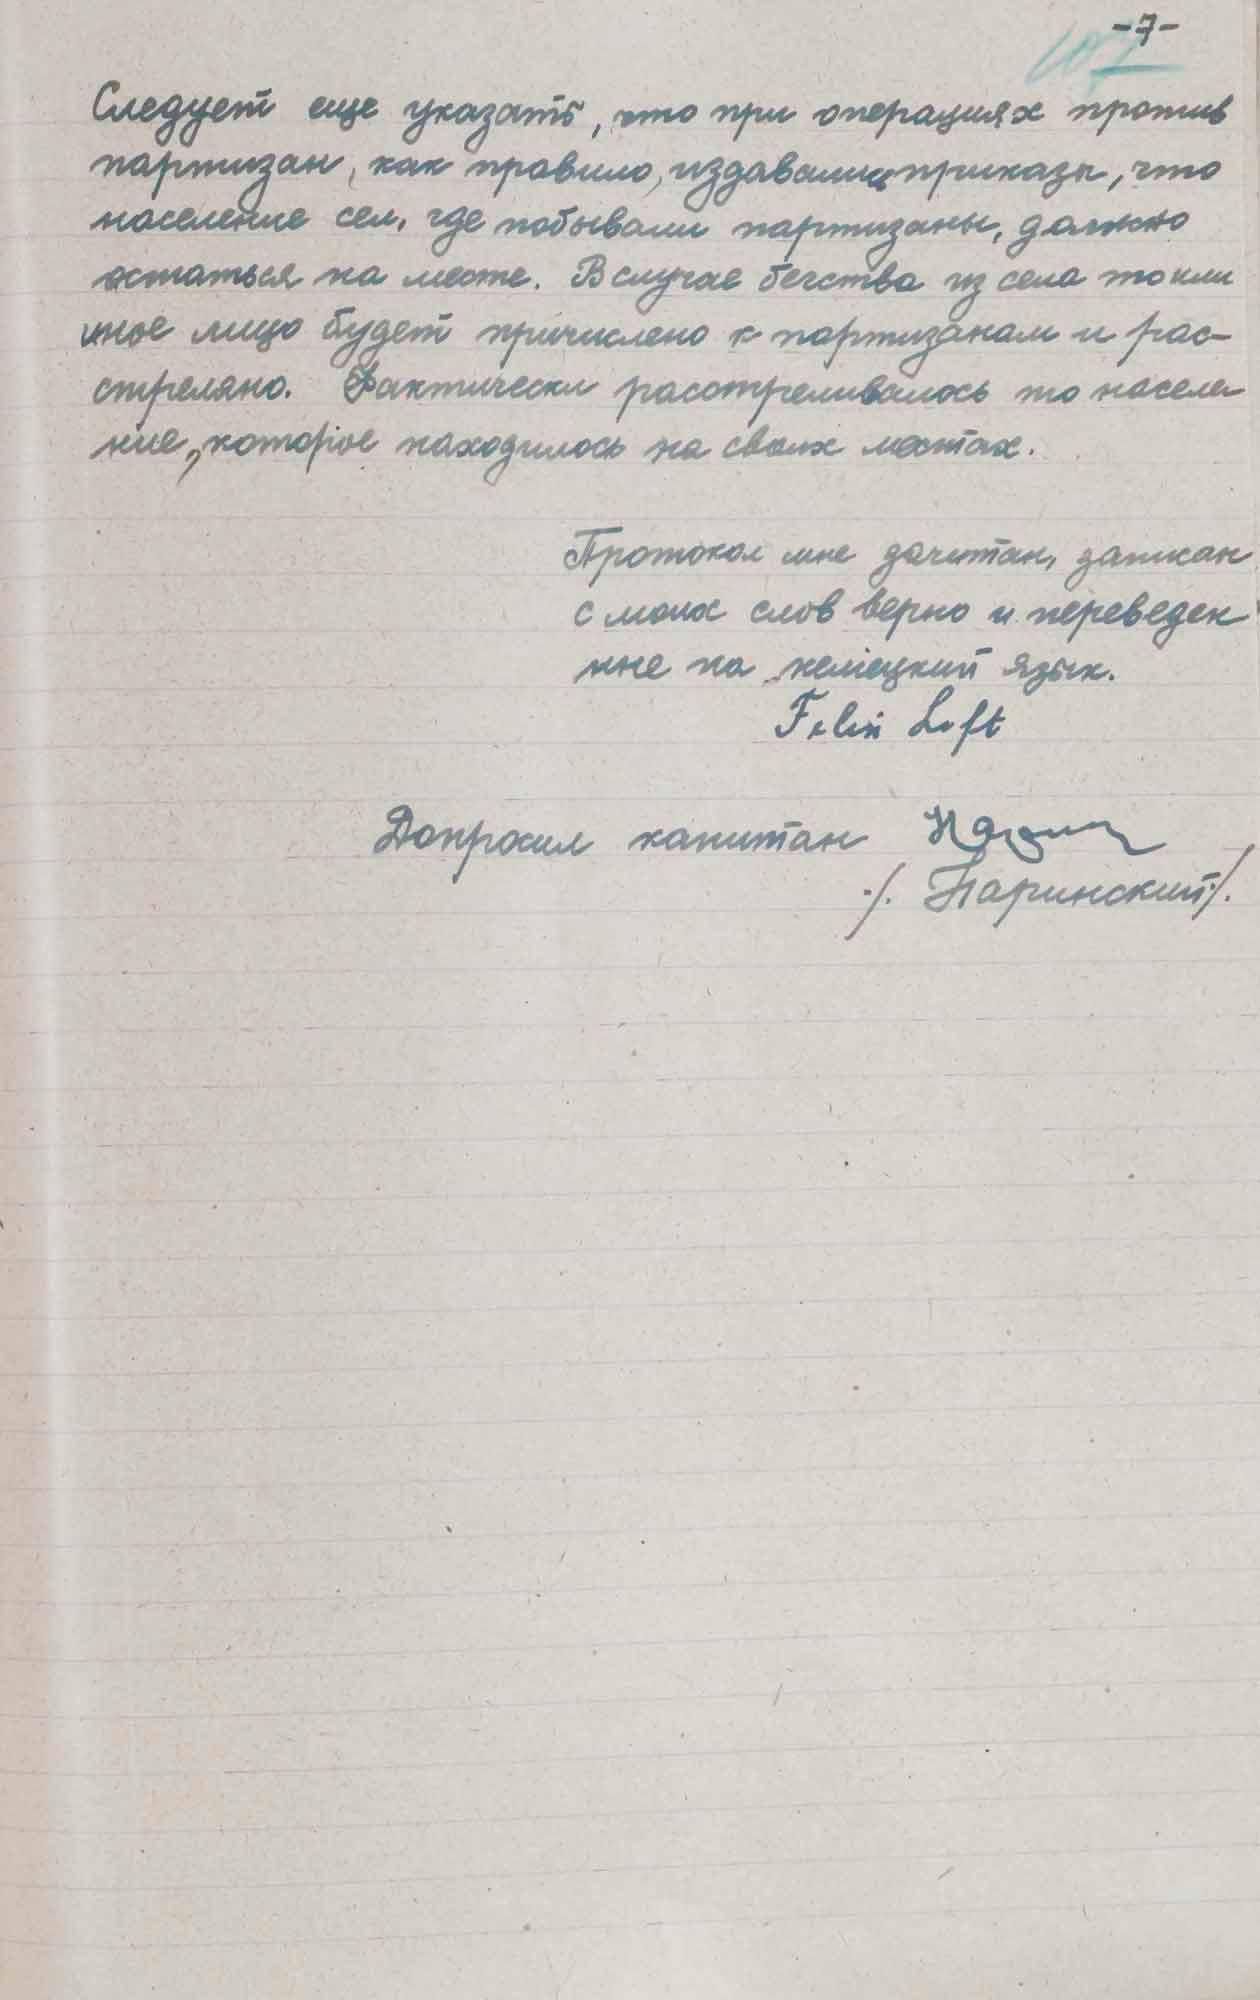 -7-
107
Следует еще указать, что при операциях против
партизан, как правило, издавались приказы, что
население сел, где побывали партизаны, должно
остаться на месте. В случае бегства из села то или
иное лицо будет причислено к партизанам и рас-
стреляно. Фактически расстреливалось то населе
ние, которое находилось на своих местах.
Протокол мне зачитан, записан
с моих слов верно и переведен
мне на немецкий язык.
Felix Loft
Допросил капитан
/. Паринский /.